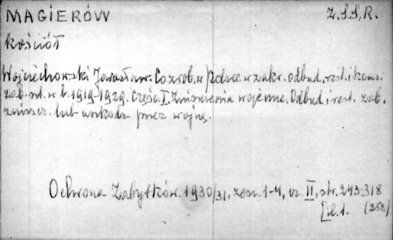 MAGIERÓW Z.S.S.R.
Kościół
Wojciechowski Jarosław. Co zrob. w Polsce w zakr. odbud., rest. i kons.
zab. szt. w l. 1919-1929. Część I. Zniszczenia wojenne. Odbud. i rest. zab.
zniszcz. lub uszkodz. przez wojnę.
Ochrona Zabytków. 1930/31, zesz. 1-4, cz. II, str. 243-318
[il. 1. (252)